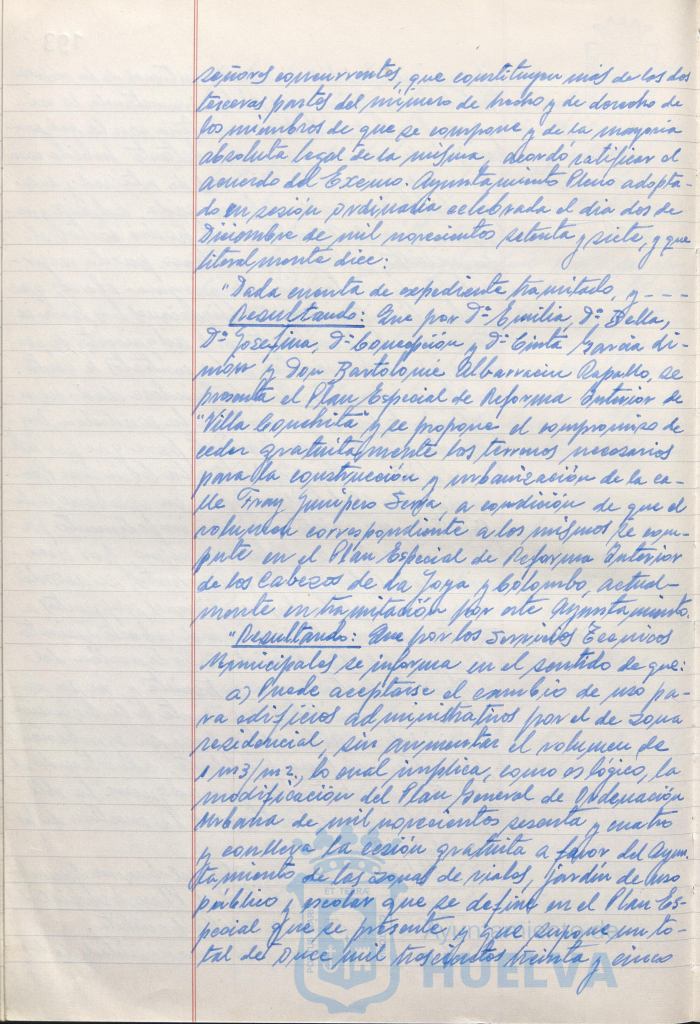 señores concurrentes, que constituyen más de las dos
terceras partes del número de hecho y de derecho de
los miembros de que se compone y de la mayoría
absoluta legal de la misma, acordó ratificar el
acuerdo del Excmo. Ayuntamiento Pleno adopta-
do en sesión ordinaria celebrada el día dos de
Diciembre de mil novecientos setenta y siete, y que
literalmente dice:
"Dada cuenta de expediente tramitado, y ----
Resultando: Que por Dª Emilia, Dª Bella,
Dª Josefina, Dª Concepción y Dª Cinta García Li-
món y Don Bartolomé Albarracín Rapallo, se
presenta el Plan Especial de Reforma Interior de
"Villa Conchita" y se propone el compromiso de
ceder gratuitamente los terrenos necesarios
para la construcción y urbanización de la ca-
lle Fray Junípero Serra, a condición de que el
volumen correspondiente a los mismos se com-
pute en el Plan Especial de Reforma Interior
de los Cabezos de la Joya y Colombo, actual-
mente en tramitación por este Ayuntamiento.
"Resultando: Que por los Servicios Técnicos
Municipales se informa en el sentido de que:
a) Puede aceptarse el cambio de uso pa-
ra edificios administrativos por el de zona
residencial, sin aumentar el volumen de
1 m3/m2, lo cual implica, como es lógico, la
modificación del Plan General de Ordenación
Urbana de mil novecientos sesenta y cuatro
y conlleva la cesión gratuita a favor del Ayun-
tamiento de las zonas de viales, jardín de uso
público y escolar que se define en el Plan Es-
pecial que se presente, y que supone un to-
tal de once mil trescientos treinta y cinco
Ayuntamiento de
HUELVA